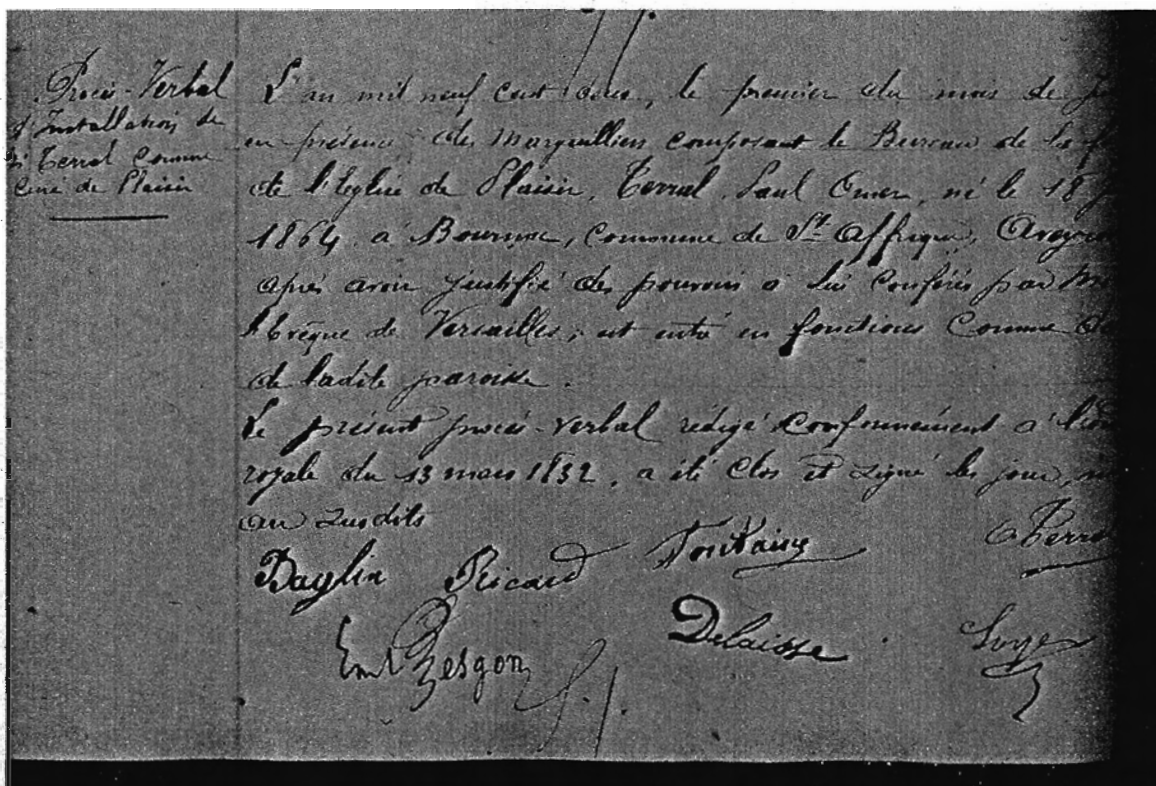 Procès-Verbal
d'Installation de
Mr Terral comme
Curé de Plaisir
L'an mil neuf cent deux, le premier du mois de
en présence des Marguilliers composant le Bureau de la
de l'Eglise de Plaisir, Terral, Paul Omer, né le 18
1864, à Bournac, commune de St Affrique, Aveyron
après avoir justifié des pouvoirs à lui conférés par
l'Evêque de Versailles, est entré en fonctions comme
de ladite paroisse.
Le présent procès-verbal rédigé conformément à
royale du 13 mars 1832, a été clos et signé les jour,
an susdits
Baglin Ricard Fontaine Terral
Delaisse